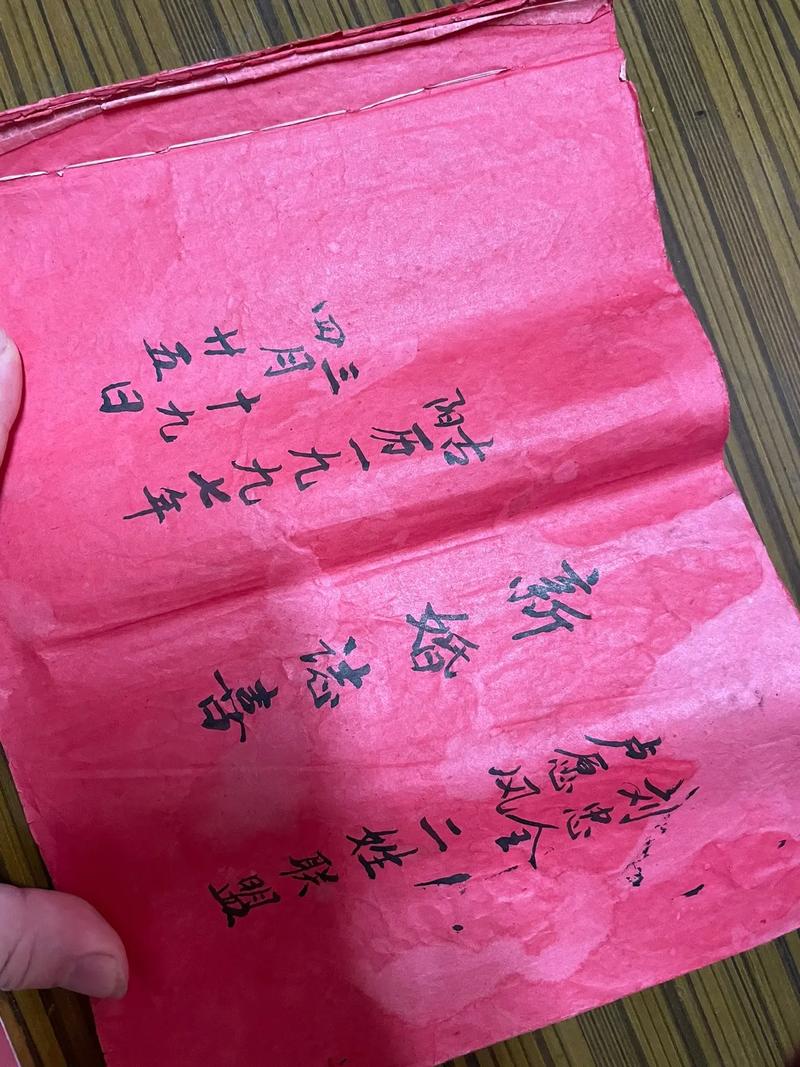 刘忠全
卢愿风
二姓联盟
新婚誌喜
古
阳
历一九九七年
三
四
月
十九
廿五
日